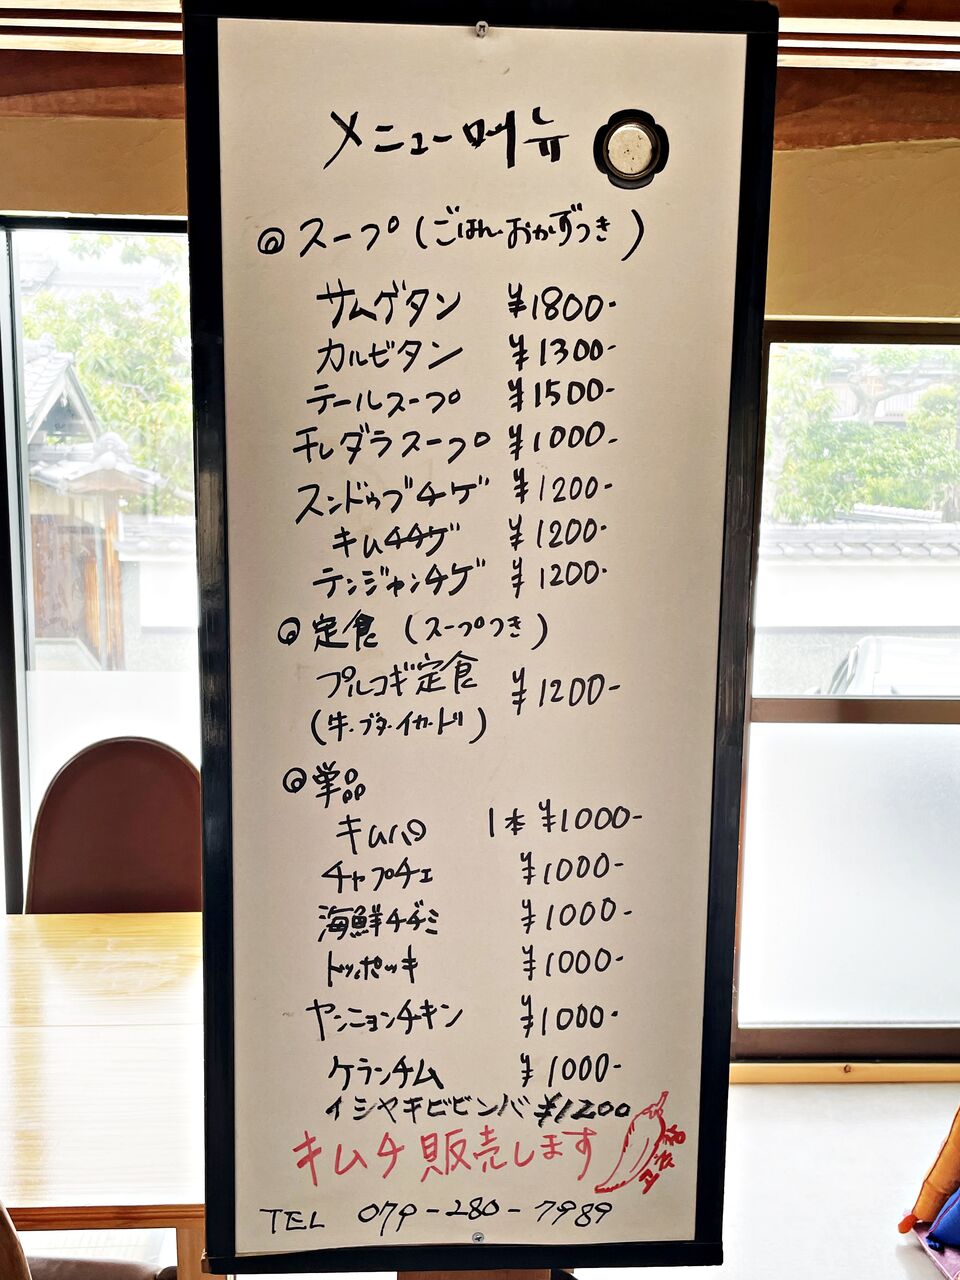 メニュー메뉴
◎スープ(ごはん・おかずつき)
サムゲタン ¥1800-
カルビタン ¥1300-
テールスープ ¥1500-
干しダラスープ ¥1000-
スンドゥブチゲ ¥1200-
キムチチゲ ¥1200-
テンジャンチゲ ¥1200-
◎定食(スープつき)
プルコギ定食 ¥1200-
(牛・ブタ・イカ・ドリ)
◎単品
キムパ 1本 ¥1000-
チャプチェ ¥1000-
海鮮チヂミ ¥1000-
トッポッキ ¥1000-
ヤンニョンチキン ¥1000-
ケランチム ¥1000-
イシヤキビビンバ ¥1200
キムチ販売します
TEL 079-280-7989